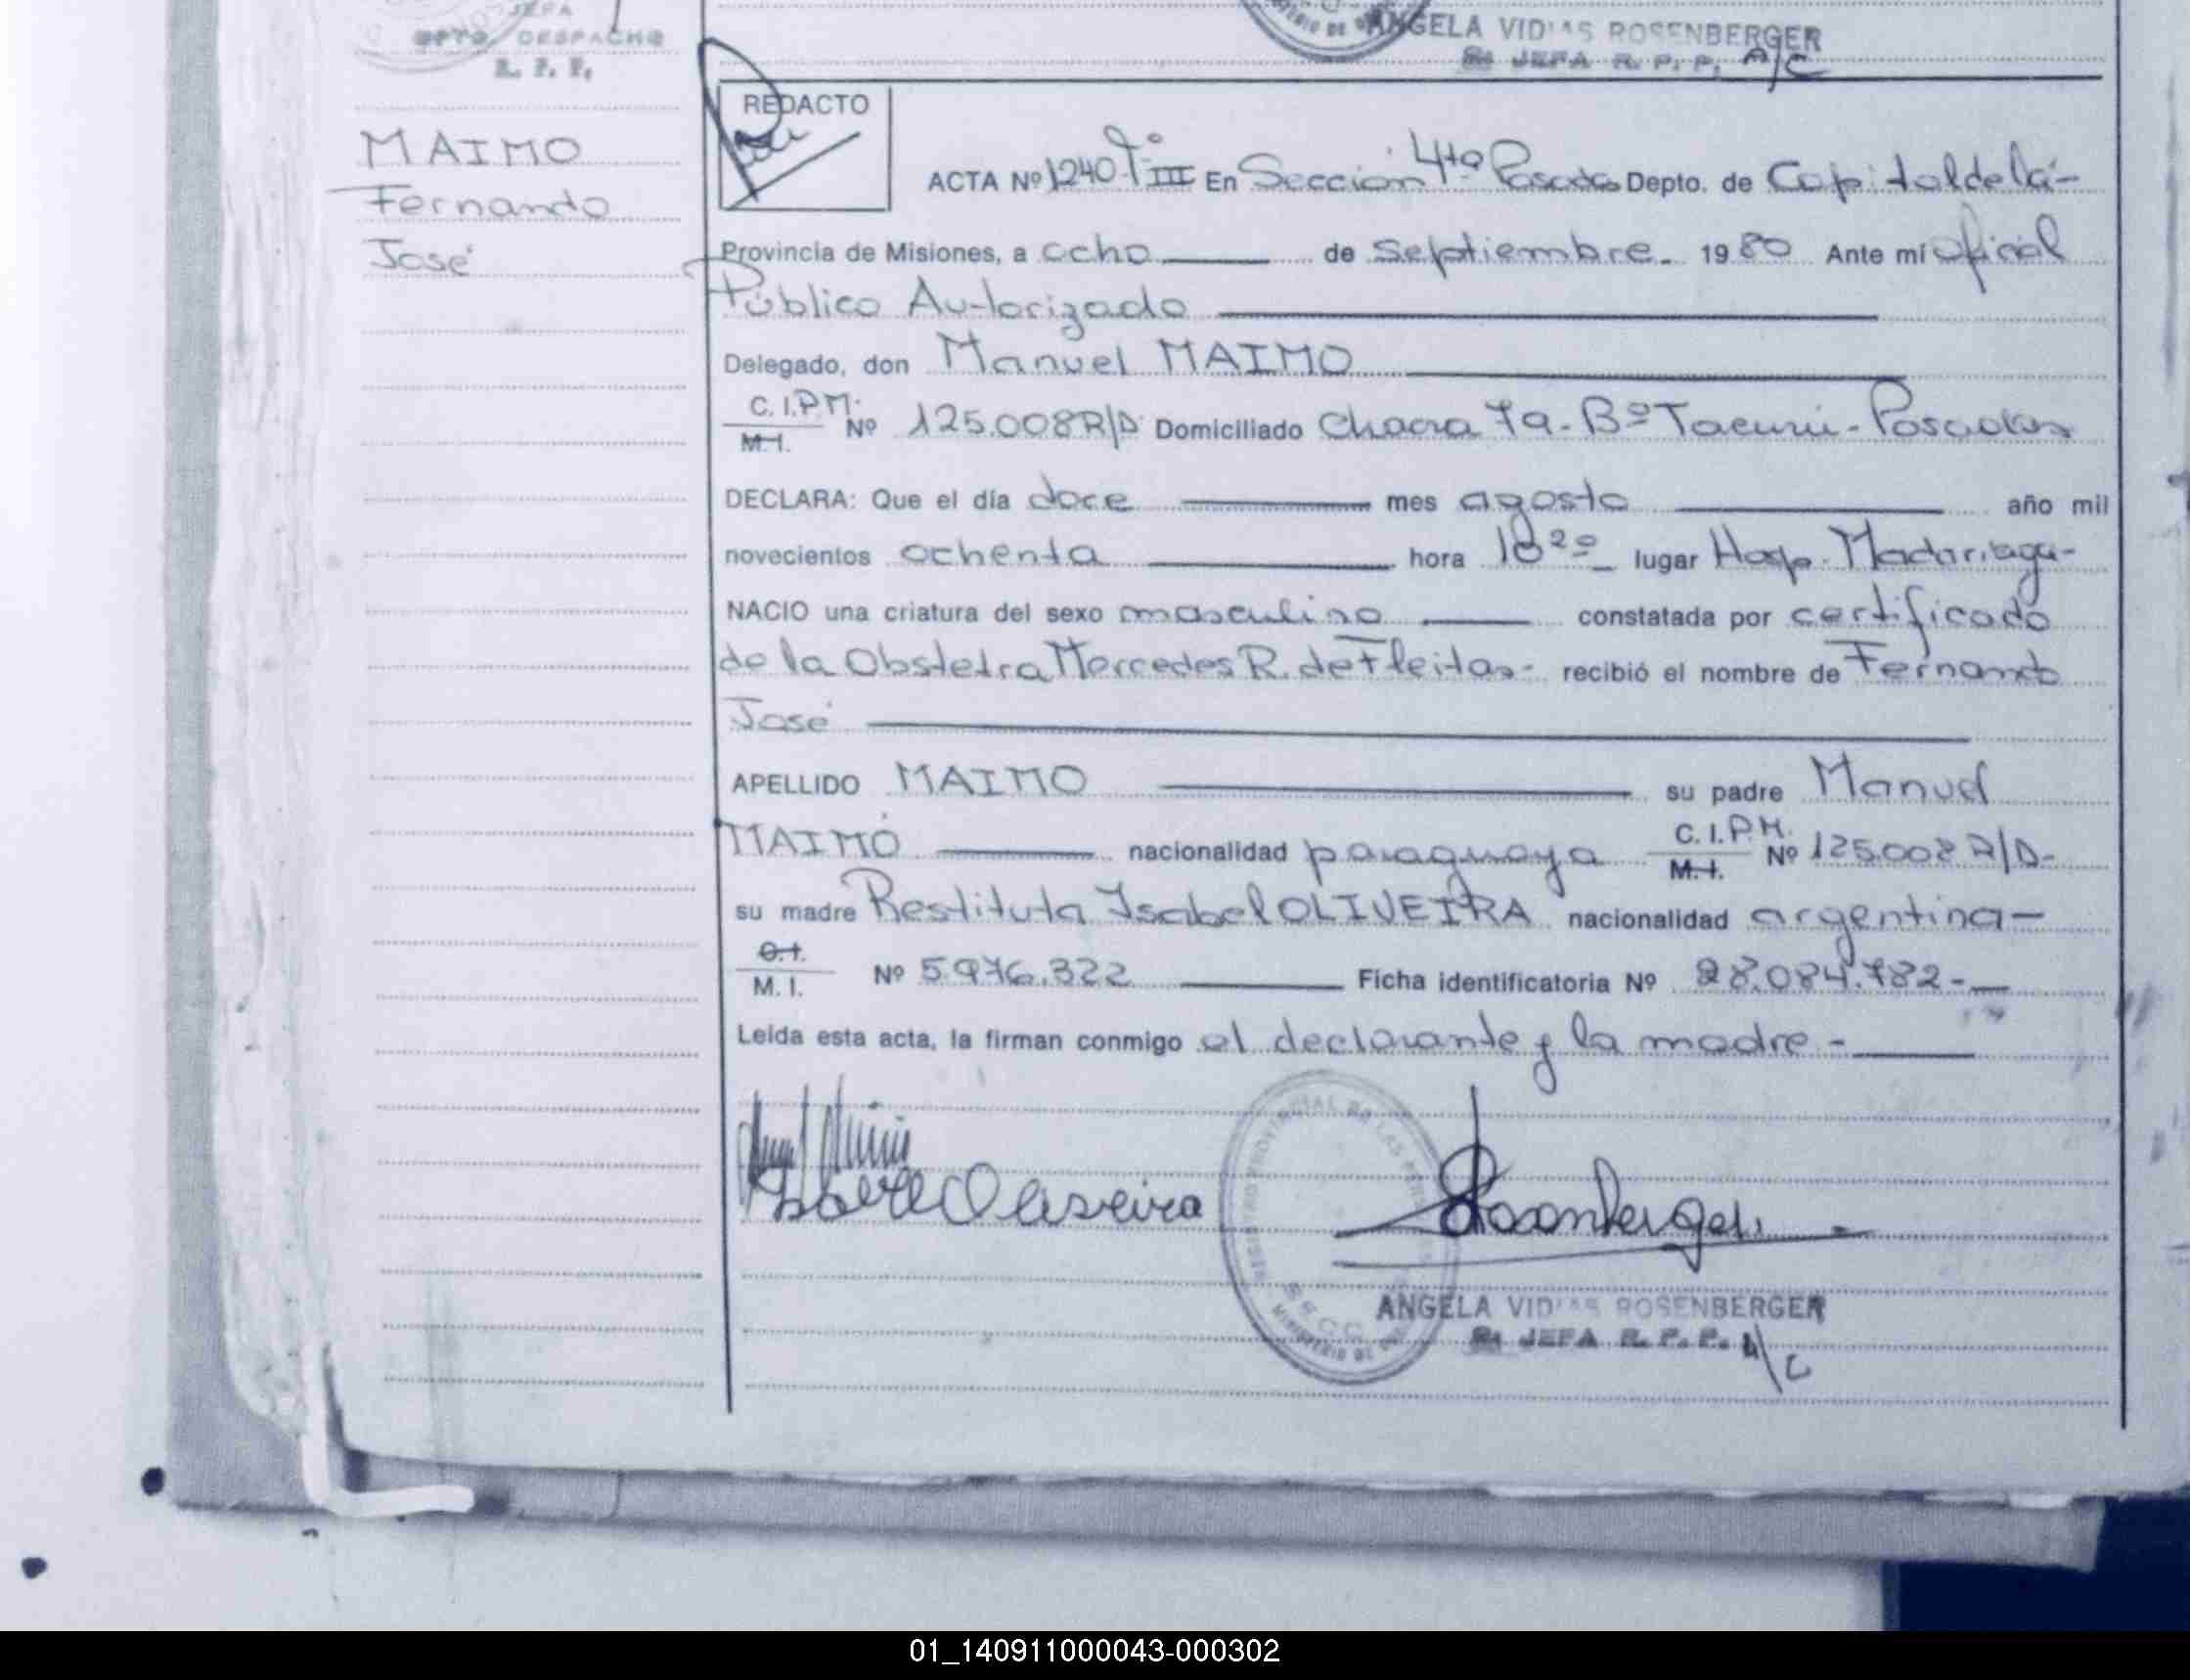 JEFA
DPTO. DESPACHO
R. P. P.
MINISTERIO DE
ANGELA VIDIAS ROSENBERGER
JEFA R. P. P. A/C
MAIMO
Fernando
José
REDACTO
ACTA Nº 1240 Tº III En Sección 4ta Posadas Depto. de Capital de la-
Provincia de Misiones, a ocho de Septiembre. 1980 Ante mí Oficial
Público Autorizado
Delegado, don Manuel MAIMO
C. I. P. M.
M. I. Nº 125.008 R/D Domiciliado Chacra 79-Bº Tacurú-Posadas
DECLARA: Que el día doce mes agosto año mil
novecientos ochenta hora 18²⁰ lugar Hosp. Madariaga-
NACIO una criatura del sexo masculino constatada por certificado
de la Obstetra Mercedes R. de Fleitas- recibió el nombre de Fernando
José
APELLIDO MAIMO su padre Manuel
MAIMÓ nacionalidad paraguaya C. I. P. M. M. I. Nº 125.008 R/D-
su madre Restituta Isabel OLIVEIRA nacionalidad argentina-
M. I. Nº 5.976.322 Ficha identificatoria Nº 28.084.782-
Leída esta acta, la firman conmigo el declarante y la madre-
Oliveira
Rosenberger
REGISTRO PROVINCIAL DE LAS PERSONAS
MINISTERIO DE
ANGELA VIDIAS ROSENBERGER
JEFA R. P. P. A/C
01_140911000043-000302